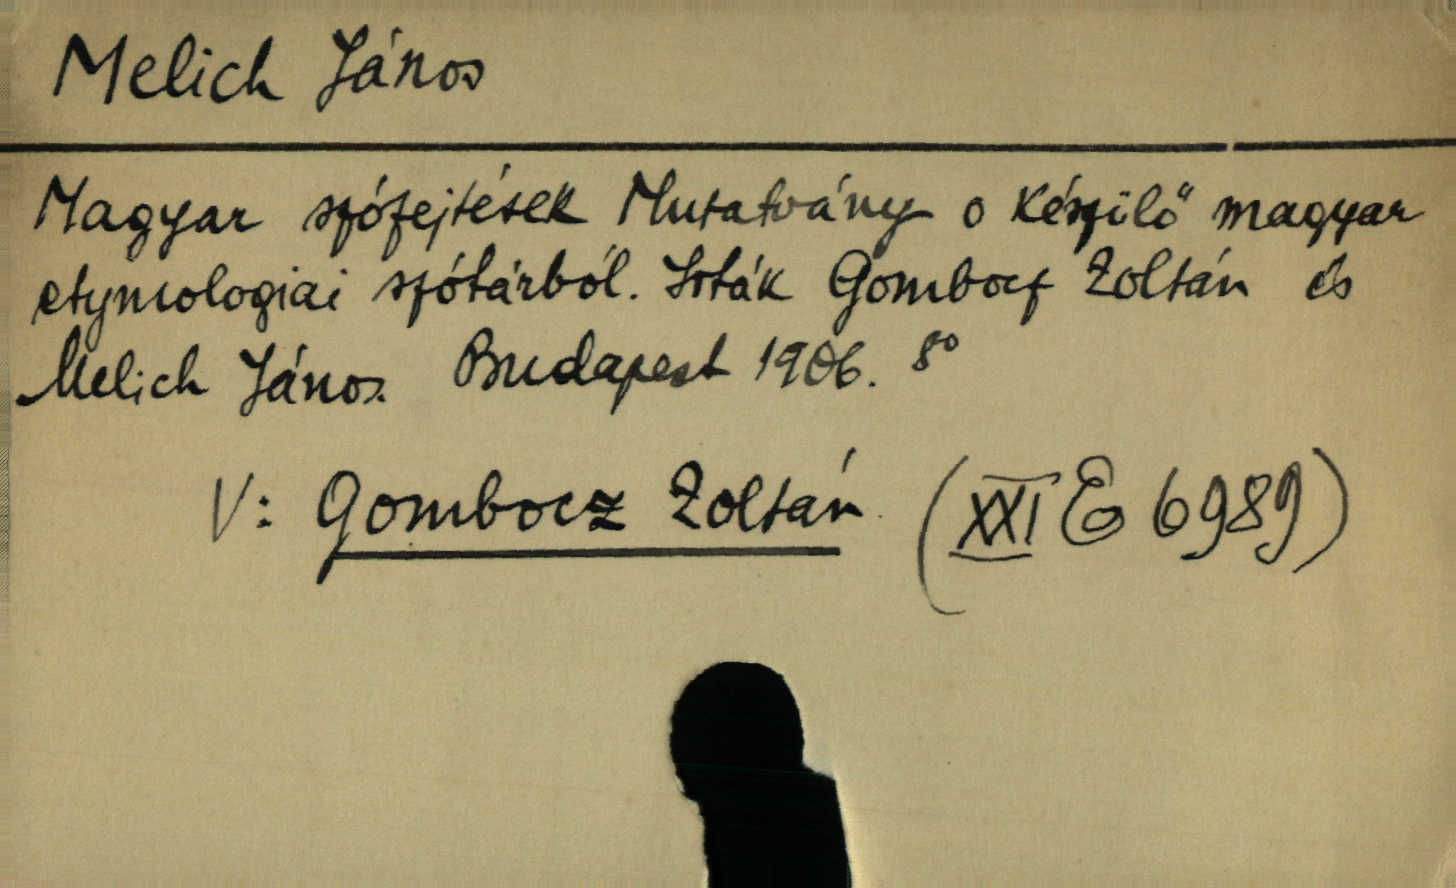 Melich János
Magyar szófejtések Mutatvány o készülő magyar
etymologiai szótárból. Irták Gombocz Zoltán és
Melich János. Budapest 1906. 8°
V: Gombocz Zoltán (XXI E 6989)